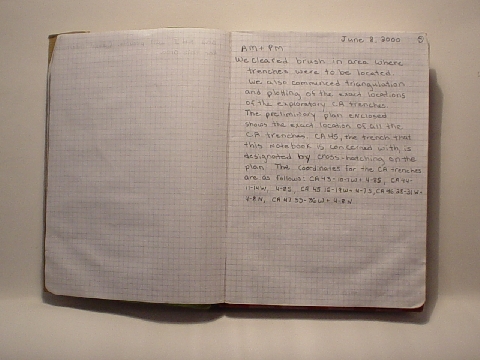 June 8, 2000 5
AM + PM
We cleared brush in area where
trenches were to be located
We also commenced triangulation
and plotting of the exact locations
of the exploratory CA trenches.
The preliminary plan enclosed
shows the exact location of all the
CA trenches. CA 45, the trench that
this notebook is concerned with, is
designated by cross-hatching on the
plan. The coordinates for the CA trenches
are as follows: CA 43- 4-8S, CA 44-
11-14W, 4-8S, CA 45 CA 46 28-31W+
4-8N, CA 47 33-36W + 4-8N